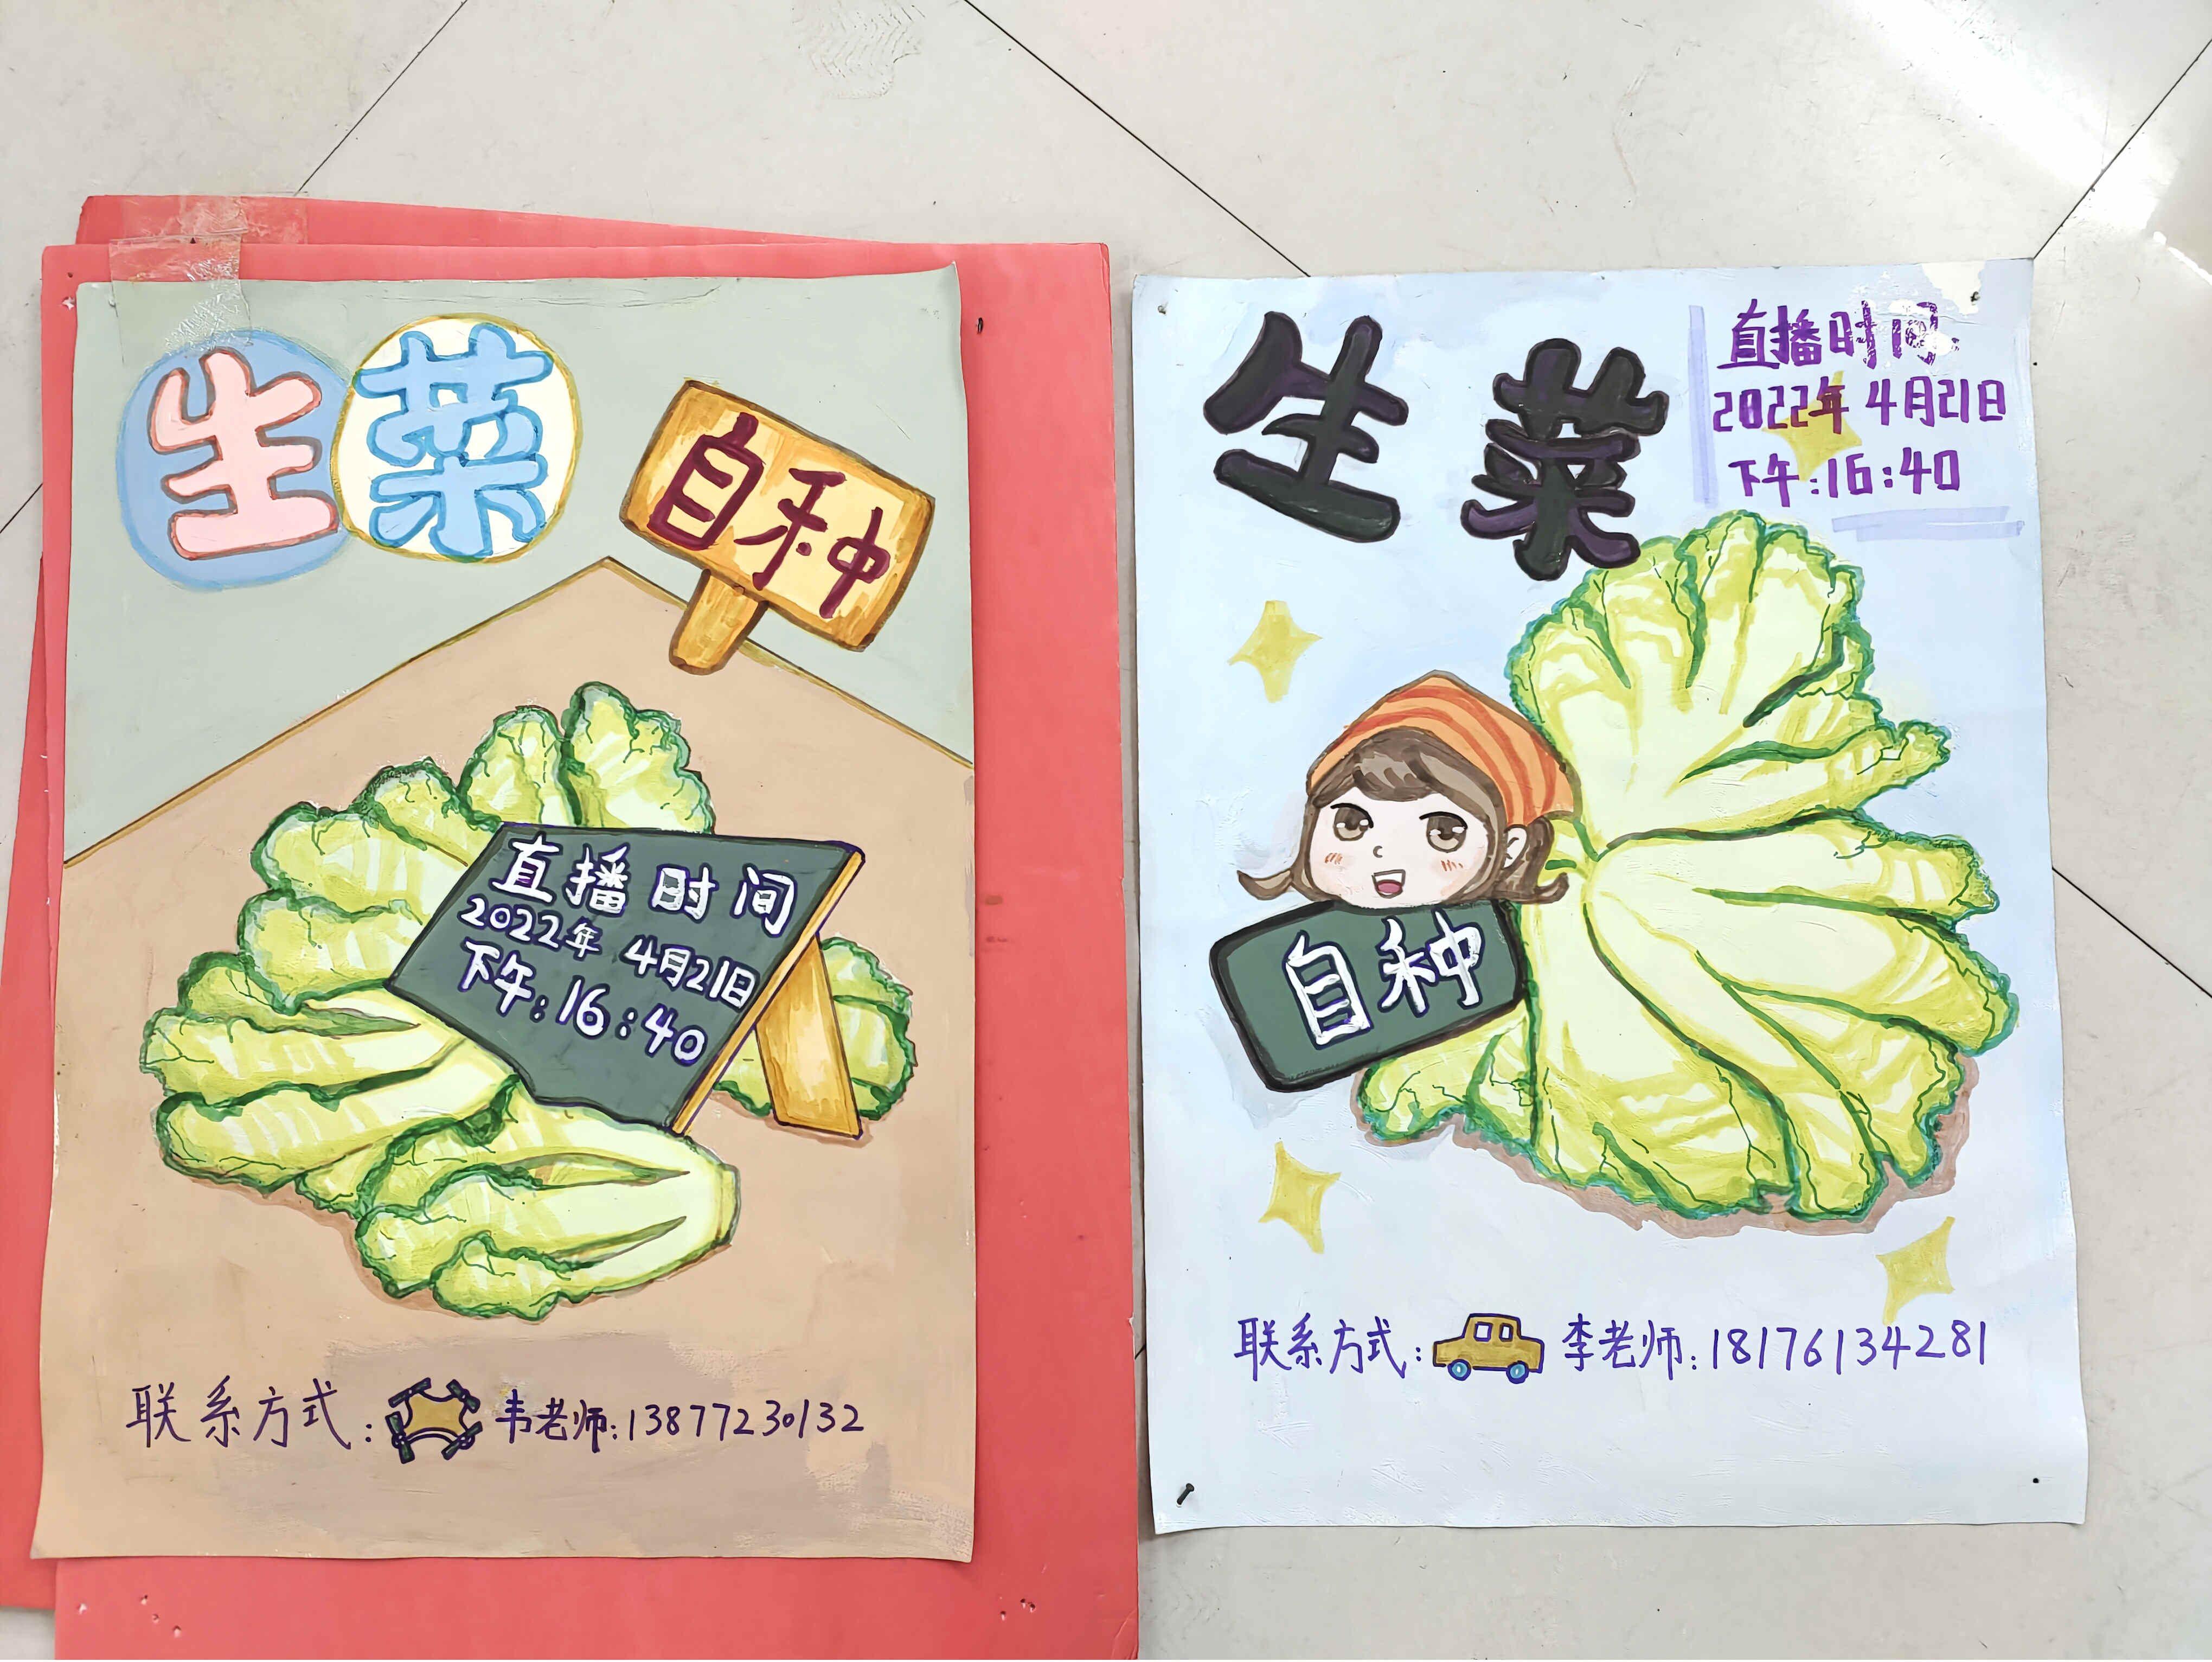 生菜
自种
直播时间
2022年 4月21日
下午:16:40
联系方式: 韦老师:13877230132
生菜
直播时间
2022年 4月21日
下午:16:40
自种
联系方式: 李老师:18176134281